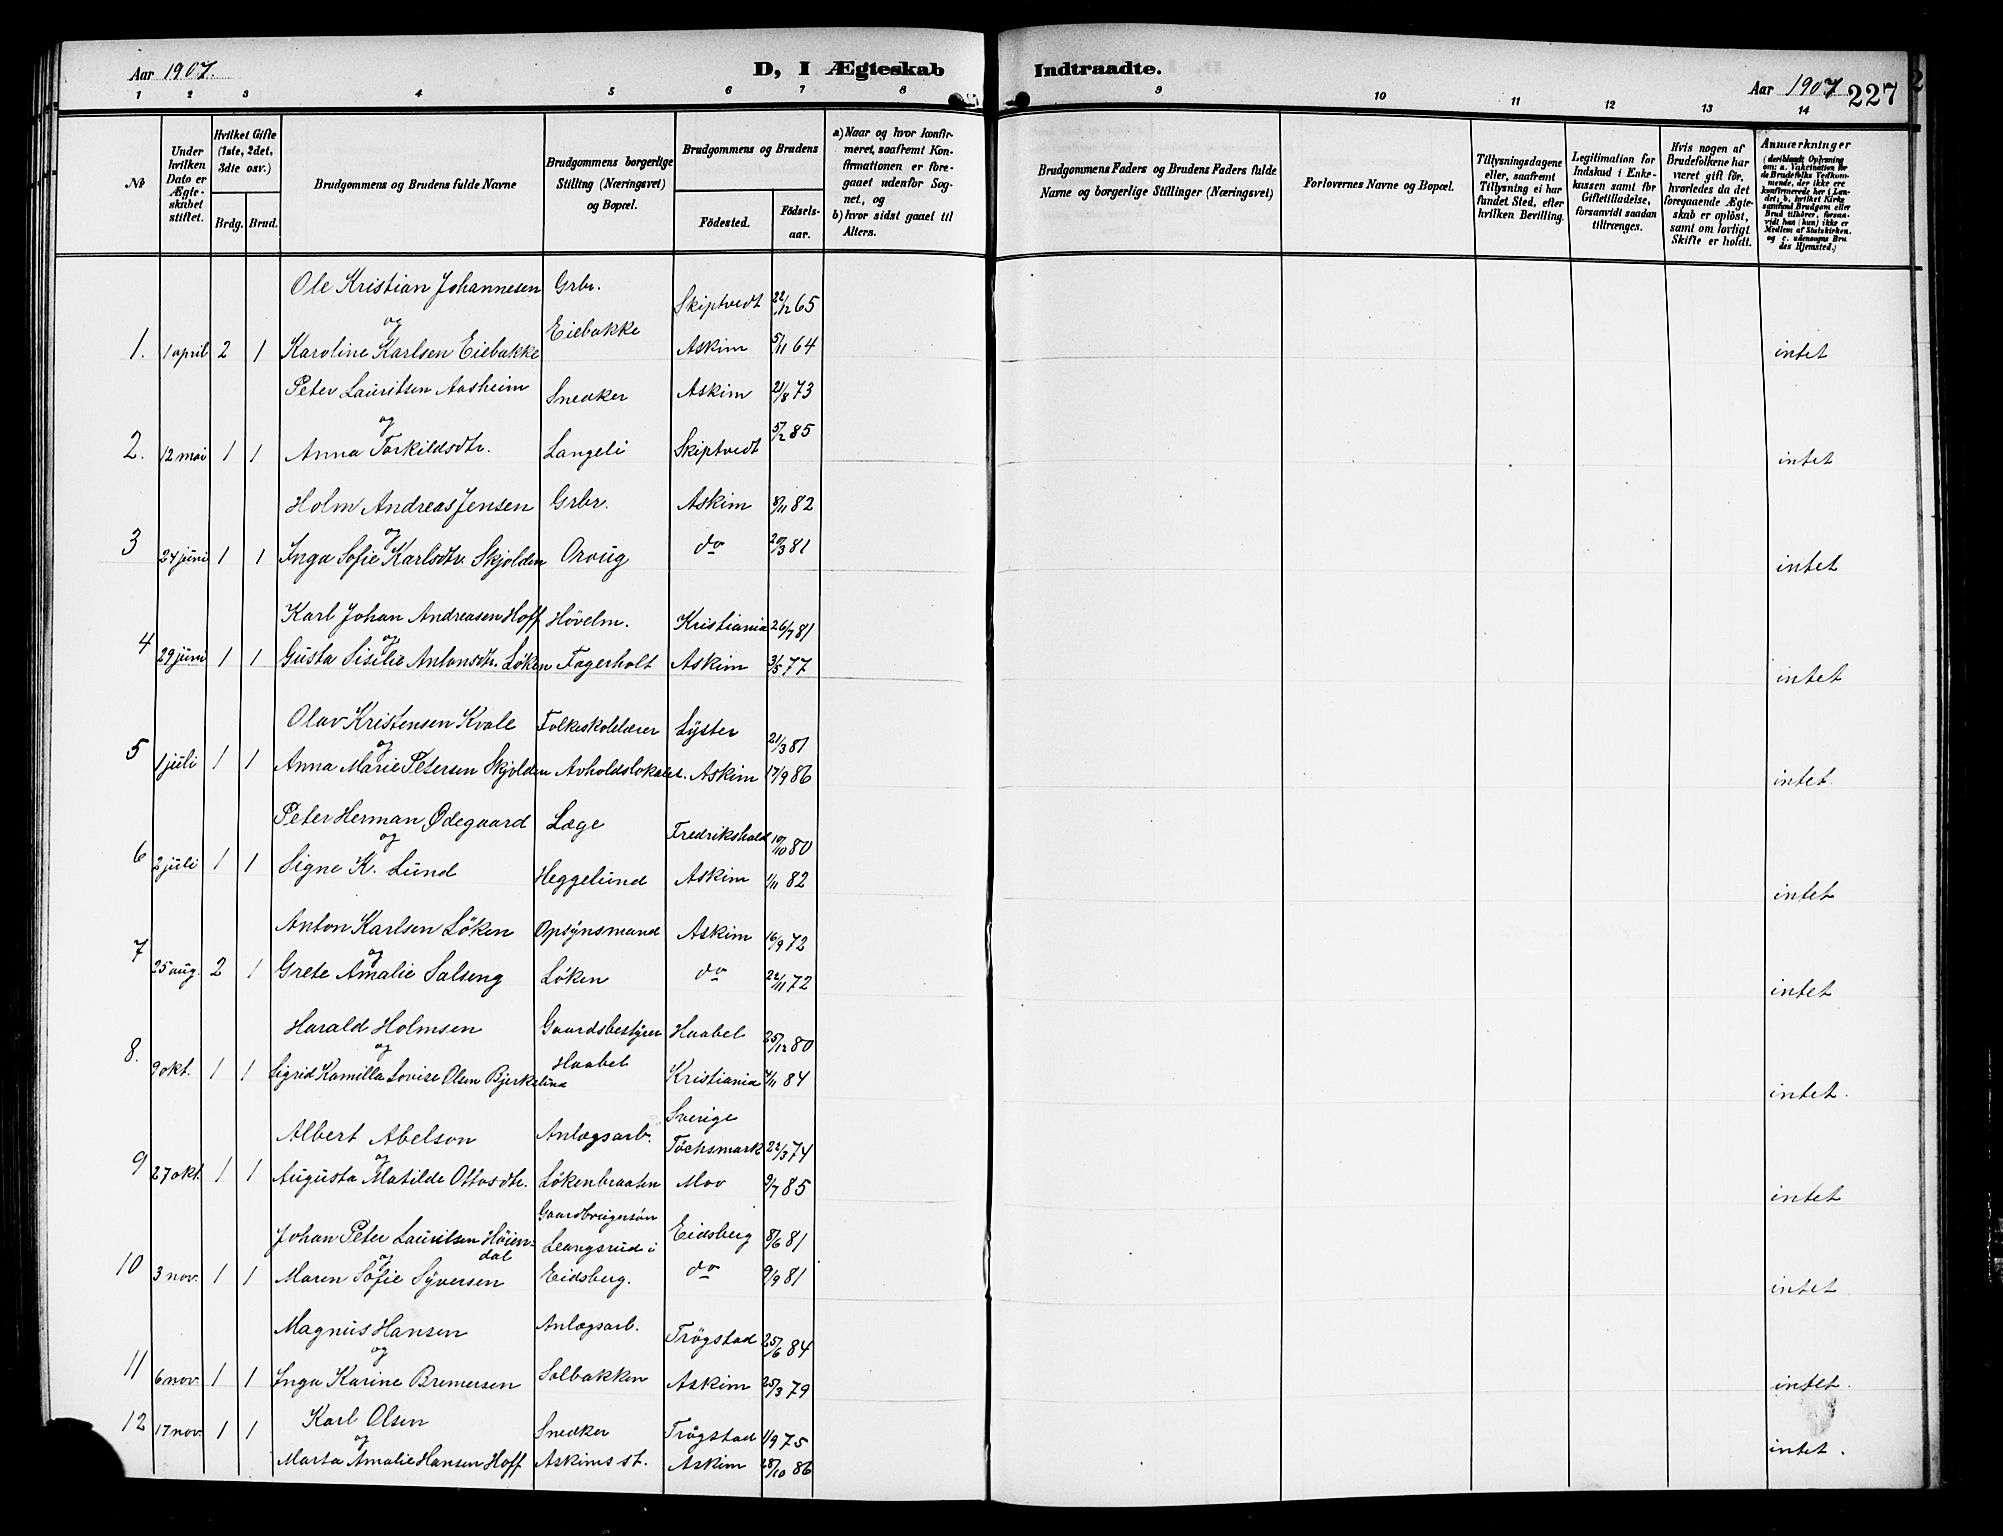 Aar 1907.
D, I Ægteskab Indtraadte.
Aar 1907
227
1 2 3 4 5 6 7 8 9 10 11 12 13 14
No
Under hvilken Dato er Ægteskabet stiftet.
Hvilket Gifte (1ste, 2det, 3dte osv.)
Brdg. Brud.
Brudgommens og Brudens fulde Navne
Brudgommens borgerlige Stilling (Næringsvei) og Bopæl.
Brudgommens og Brudens
Fødested.
Fødselsaar.
a) Naar og hvor konfirmeret, saafremt Konfirmationen er foregaaet udenfor Sognet, og
b) hvor sidst gaaet til Alters.
Brudgommens Faders og Brudens Faders fulde Navne og borgerlige Stillinger (Næringsvei)
Forlovernes Navne og Bopæl.
Tillysningsdagene eller, saafremt Tillysning ei har fundet Sted, efter hvilken Bevilling.
Legitimation for Indskud i Enkekassen samt for Giftetilladelse, forsaavidt saadan tiltrænges.
Hvis nogen af Brudefolkene har været gift før, hvorledes da det foregaaende Ægteskab er opløst, samt om lovligt Skifte er holdt.
Anmærkninger
(deriblandt Oplysning om: a. Vakcination for de Brudefolks Vedkommende, der ikke ere konfirmerede her i Landet; b. hvilket Kirkesamfund Brudgom eller Brud tilhører, forsaavidt han (hun) ikke er Medlem af Statskirken. og c. udensogns Brudes Hjemsted.)
Ole Kristian Johannesen Grbr. Skiptvedt 22/12 65
og Eiebakke
1. 1 april 2 1 Karoline Karlsen Eiebakke Askim 5/11 64 intet
Peter Lauritsen Aasheim Snedker Askim 21/8 73
og
2. 12 mai 1 1 Anna Torkildsdtr. Langeli Skiptvedt 5/2 85 intet
Holm Andreas Jensen Grbr. Askim 8/11 82
og
3 24 juni 1 1 Inga Sofie Karlsdtr. Skjolden Oraug do 20/3 81 intet
Karl Johan Andreasen Hoff Høvelm. Kristiania 26/7 81
og
4 29 juni 1 1 Gusta Sisilie Antonsdtr. Løken Fagerholt Askim 3/5 77 intet
Olav Kristensen Kvale Folkeskolelærer Lyster 21/3 81
og
5 1 juli 1 1 Anna Marie Petersen Skjolden Avholdslokalet. Askim 17/9 86 intet.
Peter Herman Ødegaard Læge Fredrikshald 10/10 80
og
6 2 juli 1 1 Signe K. Lund Heggelund Askim 1/11 82 intet
Anton Karlsen Løken Opsynsmand Askim 16/9 72
og
7 25 aug. 2 1 Grete Amalie Salseng Løken do 22/11 72 intet
Harald Holmsen Gaardsbestyrer Haabel 25/12 80
og
8. 9 okt. 1 1 Sigrid Kamilla Lovise Olsen Bjerkelund Haabel Kristiania 7/11 84 intet.
Albert Abelson Anlægsarb. Sverige Töcksmark 22/3 74
og
9 27 okt. 1 1 Augusta Matilde Ottosdtr. Løkenbraaten Mov 9/7 85 intet
Johan Peter Lauritsen Høiendal Gaardbrugersøn Eidsberg 8/6 81
og Leangsrud i
10 3 nov. 1 1 Maren Sofie Syversen Eidsberg. do 9/9 81 intet
Magnus Hansen Anlægsarb. Trøgstad 25/6 84
og
11 6 nov. 1 1 Inga Karine Bremersen Solbakken Askim 25/3 79 intet.
Karl Olsen
12 17 nov. 1 1 og Snedker Trøgstad 1/9 75
Marta Amalie Hansen Hoff Askims st. Askim 28/10 86 intet.